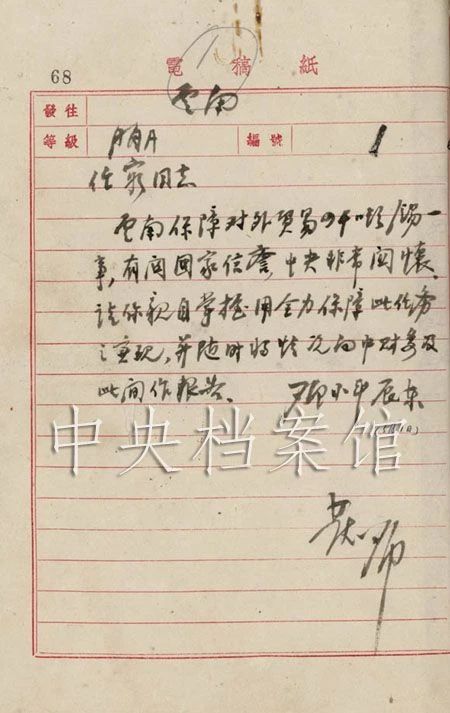 68
電稿紙
發往
云南
等級
AAAA
編號
1
任穷同志
云南保障对外贸易四千吨锡一
事,有関囯家信誉,中央非常関懷、
请你親自掌握用全力保障此任务
之实现,并随时将情况向中财委及
此间作报告。
邓小平
中央档案馆